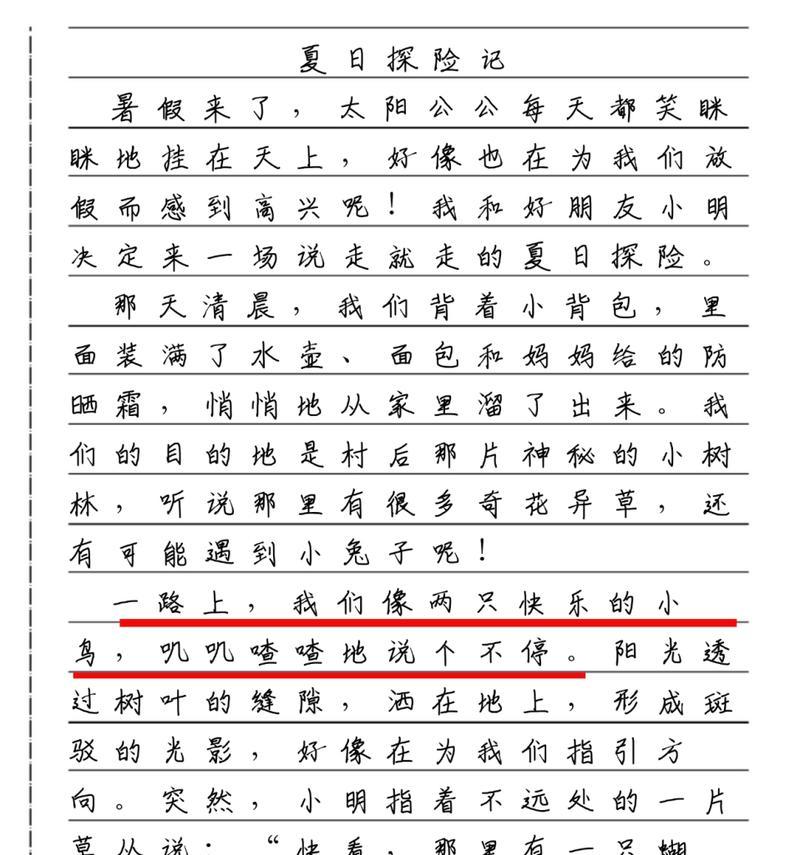 夏日探险记
暑假来了，太阳公公每天都笑眯
眯地挂在天上，好像也在为我们放
假而感到高兴呢！我和好朋友小明
决定来一场说走就走的夏日探险。
那天清晨，我们背着小背包，里
面装满了水壶、面包和妈妈给的防
晒霜，悄悄地从家里溜了出来。我
们的目的地是村后那片神秘的小树
林，听说那里有很多奇花异草，还
有可能遇到小兔子呢！
一路上，我们像两只快乐的小
鸟，叽叽喳喳地说个不停。阳光透
过树叶的缝隙，洒在地上，形成斑
驳的光影，好像在为我们指引方
向。突然，小明指着不远处的一片
草丛说：“快看，那里有一只蝴